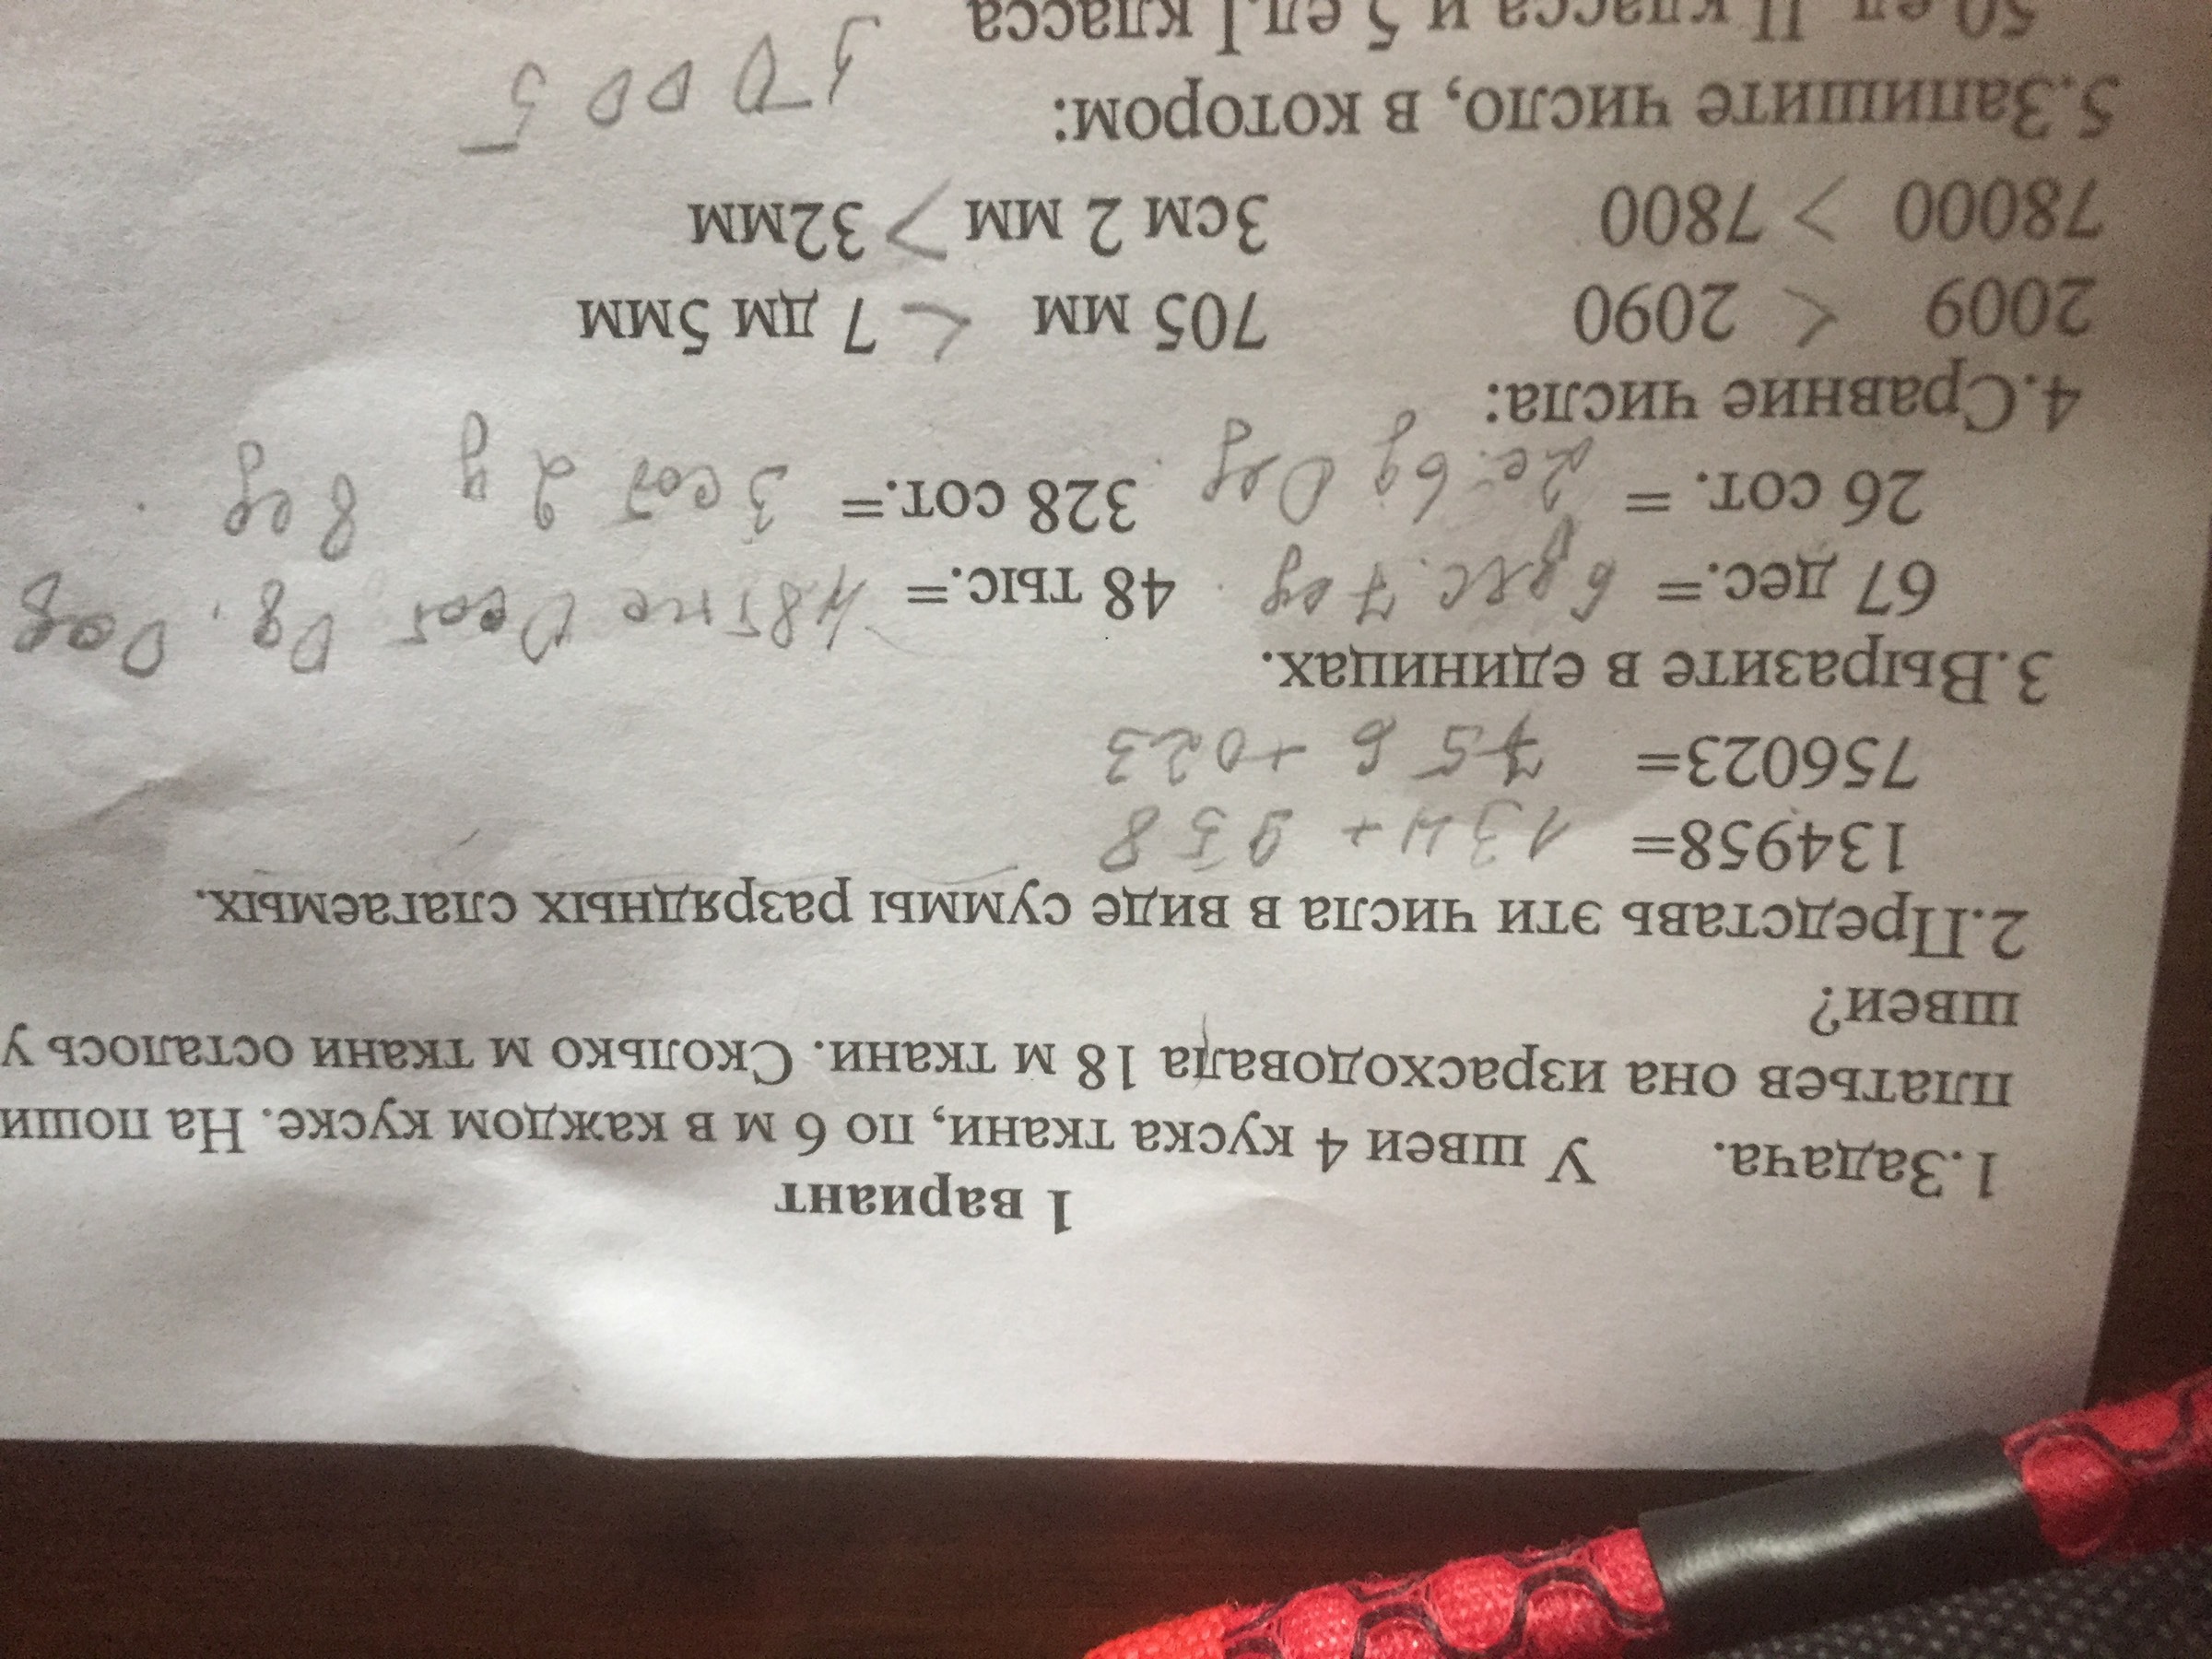 1 вариант
1.Задача. У швеи 4 куска ткани, по 6 м в каждом куске. На поши
платьев она израсходовала 18 м ткани. Сколько м ткани осталось у
швеи?
2.Представь эти числа в виде суммы разрядных слагаемых.
134958= 134+ 958
756023= 756 +023
3.Вырazите в единицах.
67 дес.= 6 дес. 7 ед. 48 тыс.= 48 0 сот 0д. 0 ед
26 сот. = 6д 0 ед. 328 сот.= 3 сот 2 д 8 ед.
4.Сравние числа:
2009 < 2090 705 мм < 7 дм 5мм
78000 > 7800 3см 2 мм > 32мм
5.Запишите число, в котором:
50 ед II класса и 5 ед.I класса 5 0 0 0 5